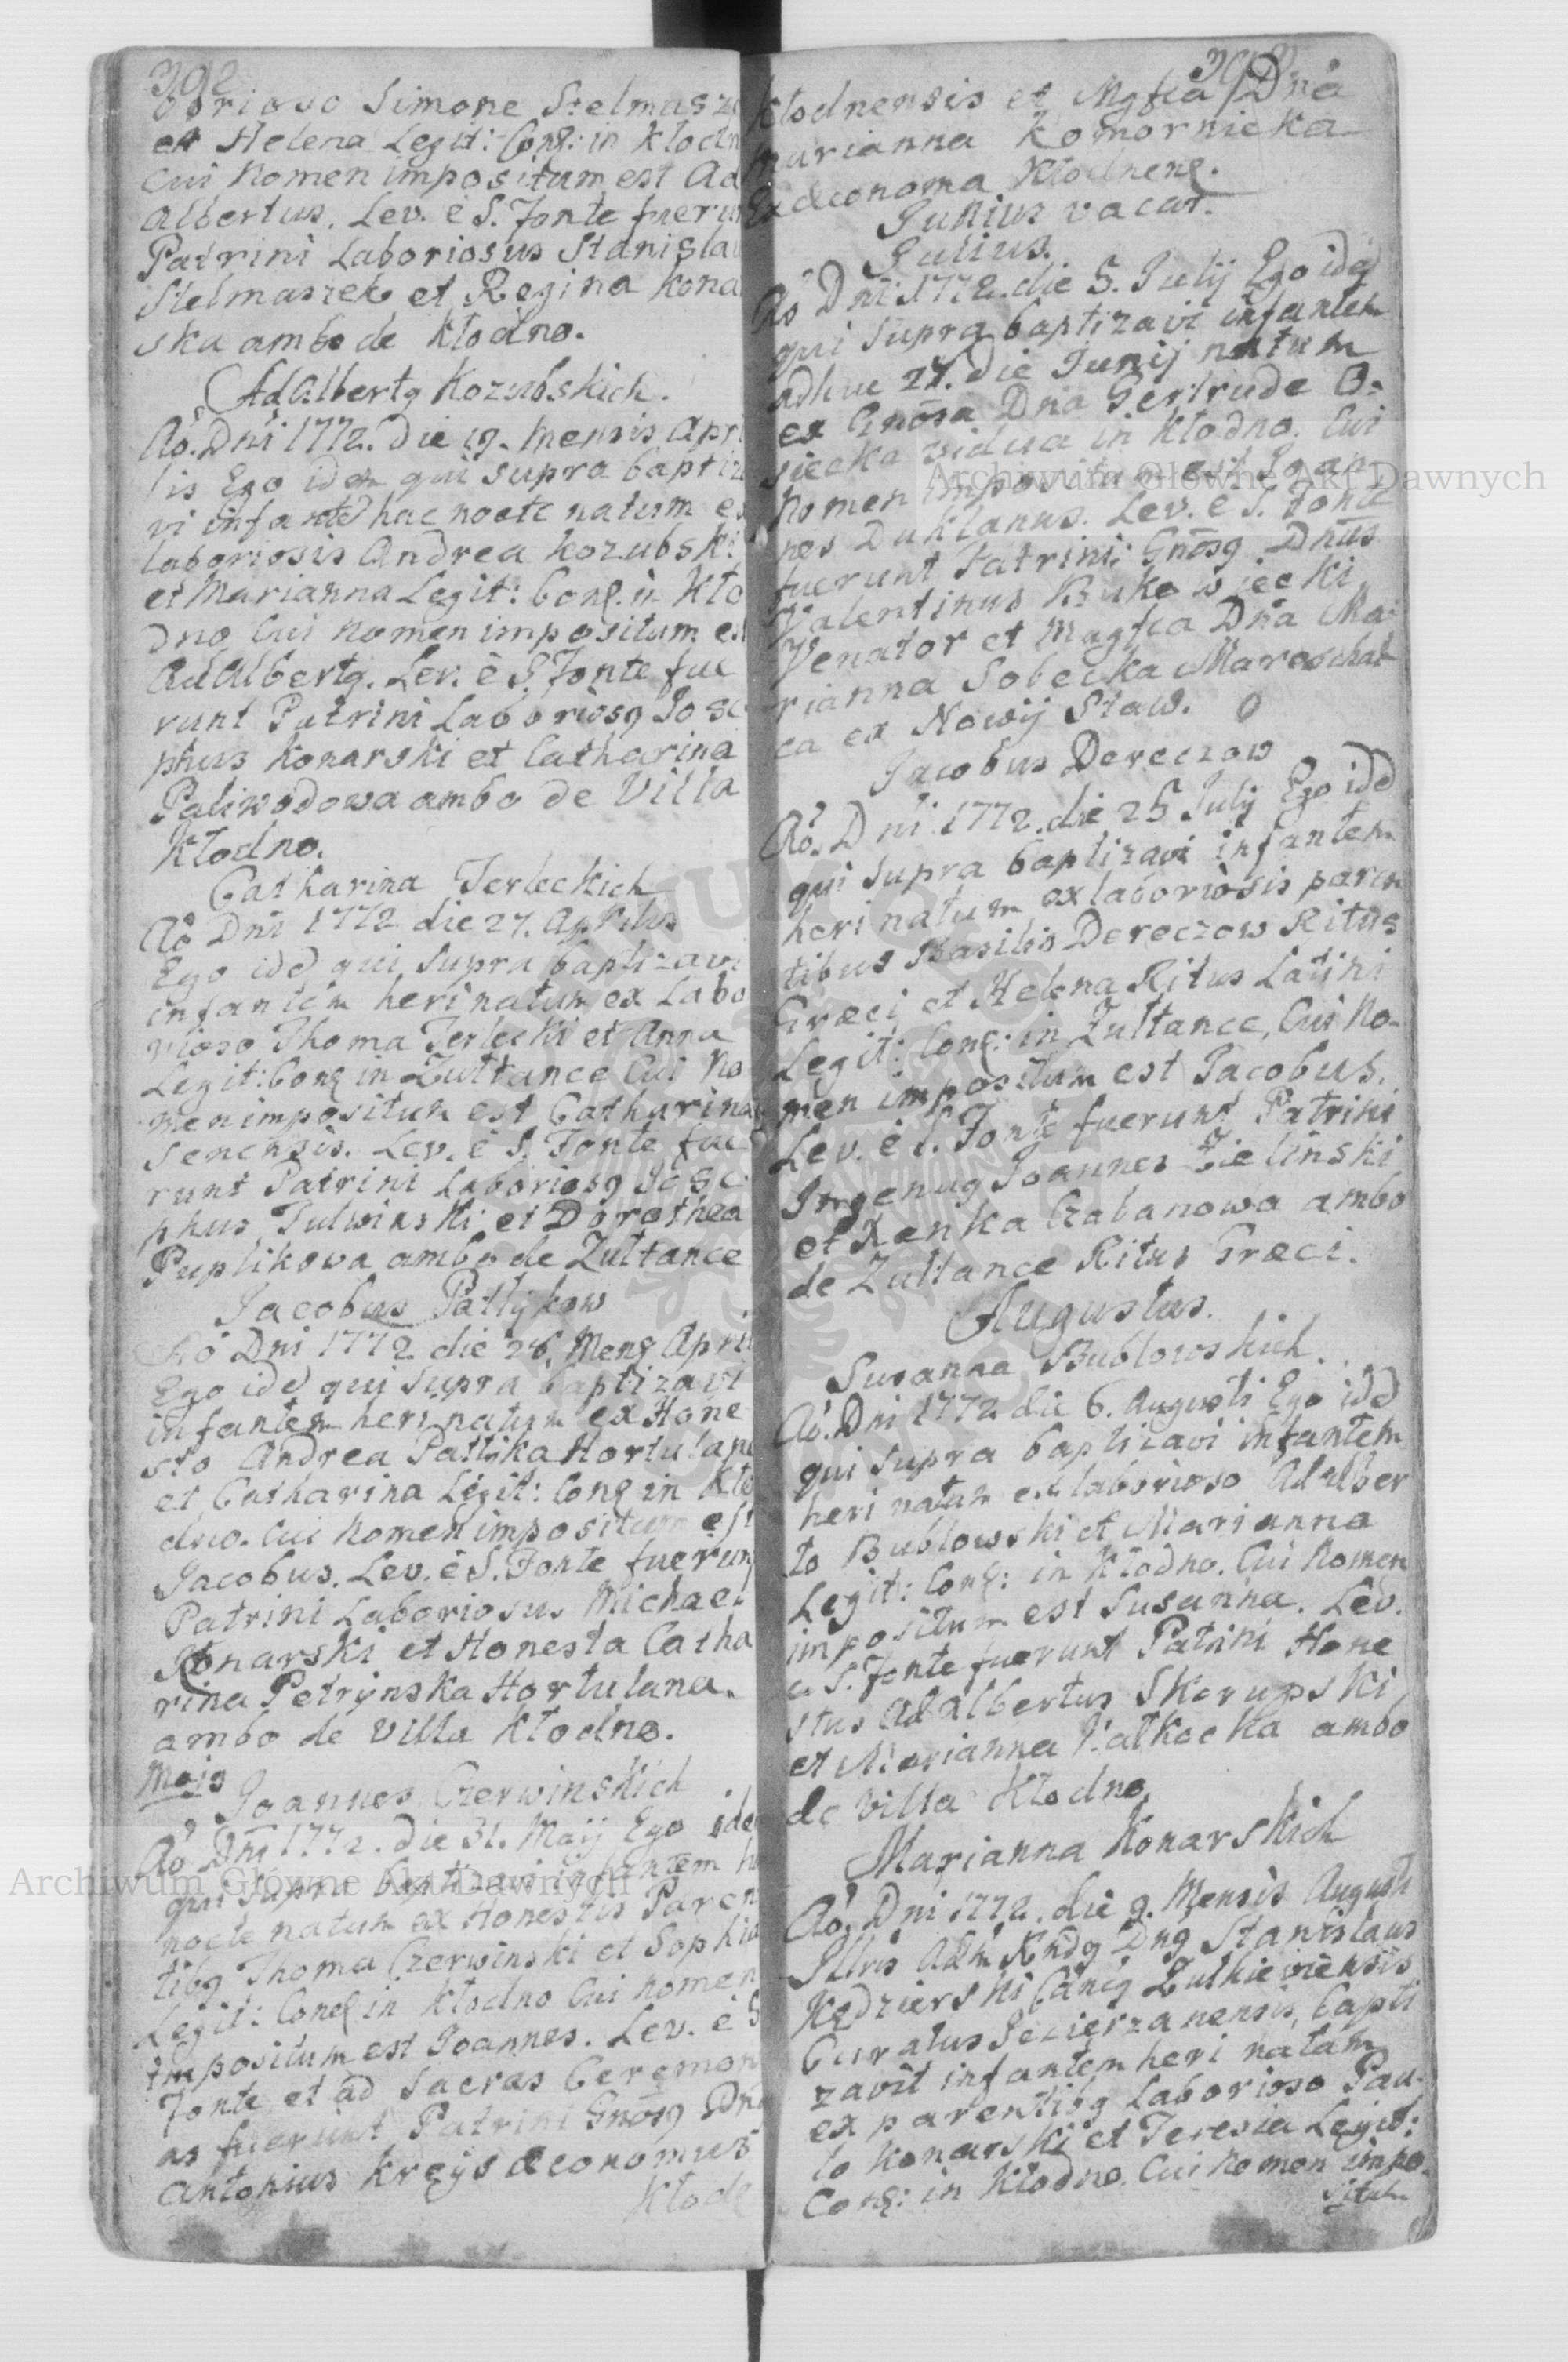 392
borioso Simone Stelmasz
et Helena Legit: Conq: in Kłodn
cui Nomen impositum est Ad
albertus. Lev. è S. Fonte fuerun
Patrini Laboriosus Stanisla
Stelmaszek et Regina Kona
ska ambo de Kłodno.
AdAlbertq Kozubskich.
Aõ. Dni 1772. Die 19. Mensis Apri
lis Ego idem qui supra baptiza
vi infante hac nocte natum ex
laboriosis Andrea Kozubski
et Marianna Legit: Conq. in Kło
dno Cui Nomen impositum est
AdAlbertq. Lev. è S. Fonte fue
runt Patrini Laboriosq Jose
phus Konarski et Catharina
Paliwodowa ambo de Villa
Kłodno.
Catharina Terleckich
Aõ Dni 1772 die 27. Aprilis
Ego idẽ qui supra baptizavi
infantem heri natum ex Labo
rioso Thoma Terlecki et Anna
Legit: Conq in Zułtance Cui No
men impositum est Catharina
Senensis. Lev. è S. Fonte fue
runt Patrini Laboriosq Jose
phus Tulwinski et Dorothea
Puplikowa ambo de Zułtance
Jacobus Patłykow
Aõ Dni 1772 die 28. Mens Apri
Ego idẽ qui supra baptizavi
infantem heri natum ex Hone
sto Andrea Patłyka Hortulano
et Catharina Legit: Conq in Kło
dno. Cui Nomen impositum est
Jacobus. Lev. è S. Fonte fuerunt
Patrini Laboriosus Michael
Konarski et Honesta Catha
rina Petrynska Hortulana.
ambo de Villa Kłodno.
Majq
Joannes Czerwinskich
Aõ Dni 1772. die 31. Maij Ego ide
qui supra baptizavi infantem h
nocte natum ex Honestis Paren
tibq Thoma Czerwinski et Sophia
Legit: Conq in Kłodno Cui Nomen
impositum est Joannes. Lev. è S
Fonte et ad Sacras Ceremoni
as fuerunt Patrini Gnosq Dn
Antonius Kreys Œconomus
Kłodn
Kłodnensis et Mgfca Dna
Marianna Komornicka
Exœconoma Kłodnens.
Junius vacat.
Julius.
Aõ Dni 1772. die 5. Julij Ego idẽ
qui supra baptizavi infantem
adhuc 27. Die Junij natum
ex Gnosa Dna Gertrude O-
siecka vidua in Kłodno. Cui
Nomen impositum est Joan
nes Duklanus. Lev. è S. Fonte
fuerunt Patrini: Gnosq Dnus
Valentinus Bukowiecki
Venator et Magfca Dna Ma
rianna Sobecka Mareschal
ca ex Nowij Staw.
Jacobus Dereczow
Aõ. Dni 1772. die 25 Julij Ego idẽ
qui supra baptizavi infantem
heri natum ex laboriosis paren
tibus Basilio Dereczow Ritus
Græci et Helena Ritus Latini
Legit: Conq: in Zułtance, Cui No-
men impositum est Jacobus.
Lev. è S. Fonte fuerunt Patrini
Ingenuq Joannes Zielinski
et Xenka Czabanowa ambo
de Zułtance Ritus Græci.
Augustus.
Susanna Bublowskich.
Aõ. Dni 1772 die 6. Augusti Ego idẽ
qui supra baptizavi infantem
heri natam ex laborioso Adalber
to Bublowski et Marianna
Legit: Conq: in Kłodno. Cui Nomen
impositum est Susanna. Lev.
è S. Fonte fuerunt Patrini Hone
stus Adalbertus Skorupski
et Marianna Pałkocka ambo
de Villa Kłodno.
Marianna Konarskich
Aõ. Dni 1772. die 9. Mensis Augusti
Illris Adm Rndq Dnq Stanislaus
Kędzierski Canq Zulkieviensis
Curatus Jezierzanensis, bapti
zavit infantem heri natam
ex parentibq Laborioso Pau-
lo Konarski et Teresia Legit:
Conq: in Kłodno. Cui Nomen impo
situm
Archiwum Główne Akt Dawnych
Archiwum Główne Akt Dawnych